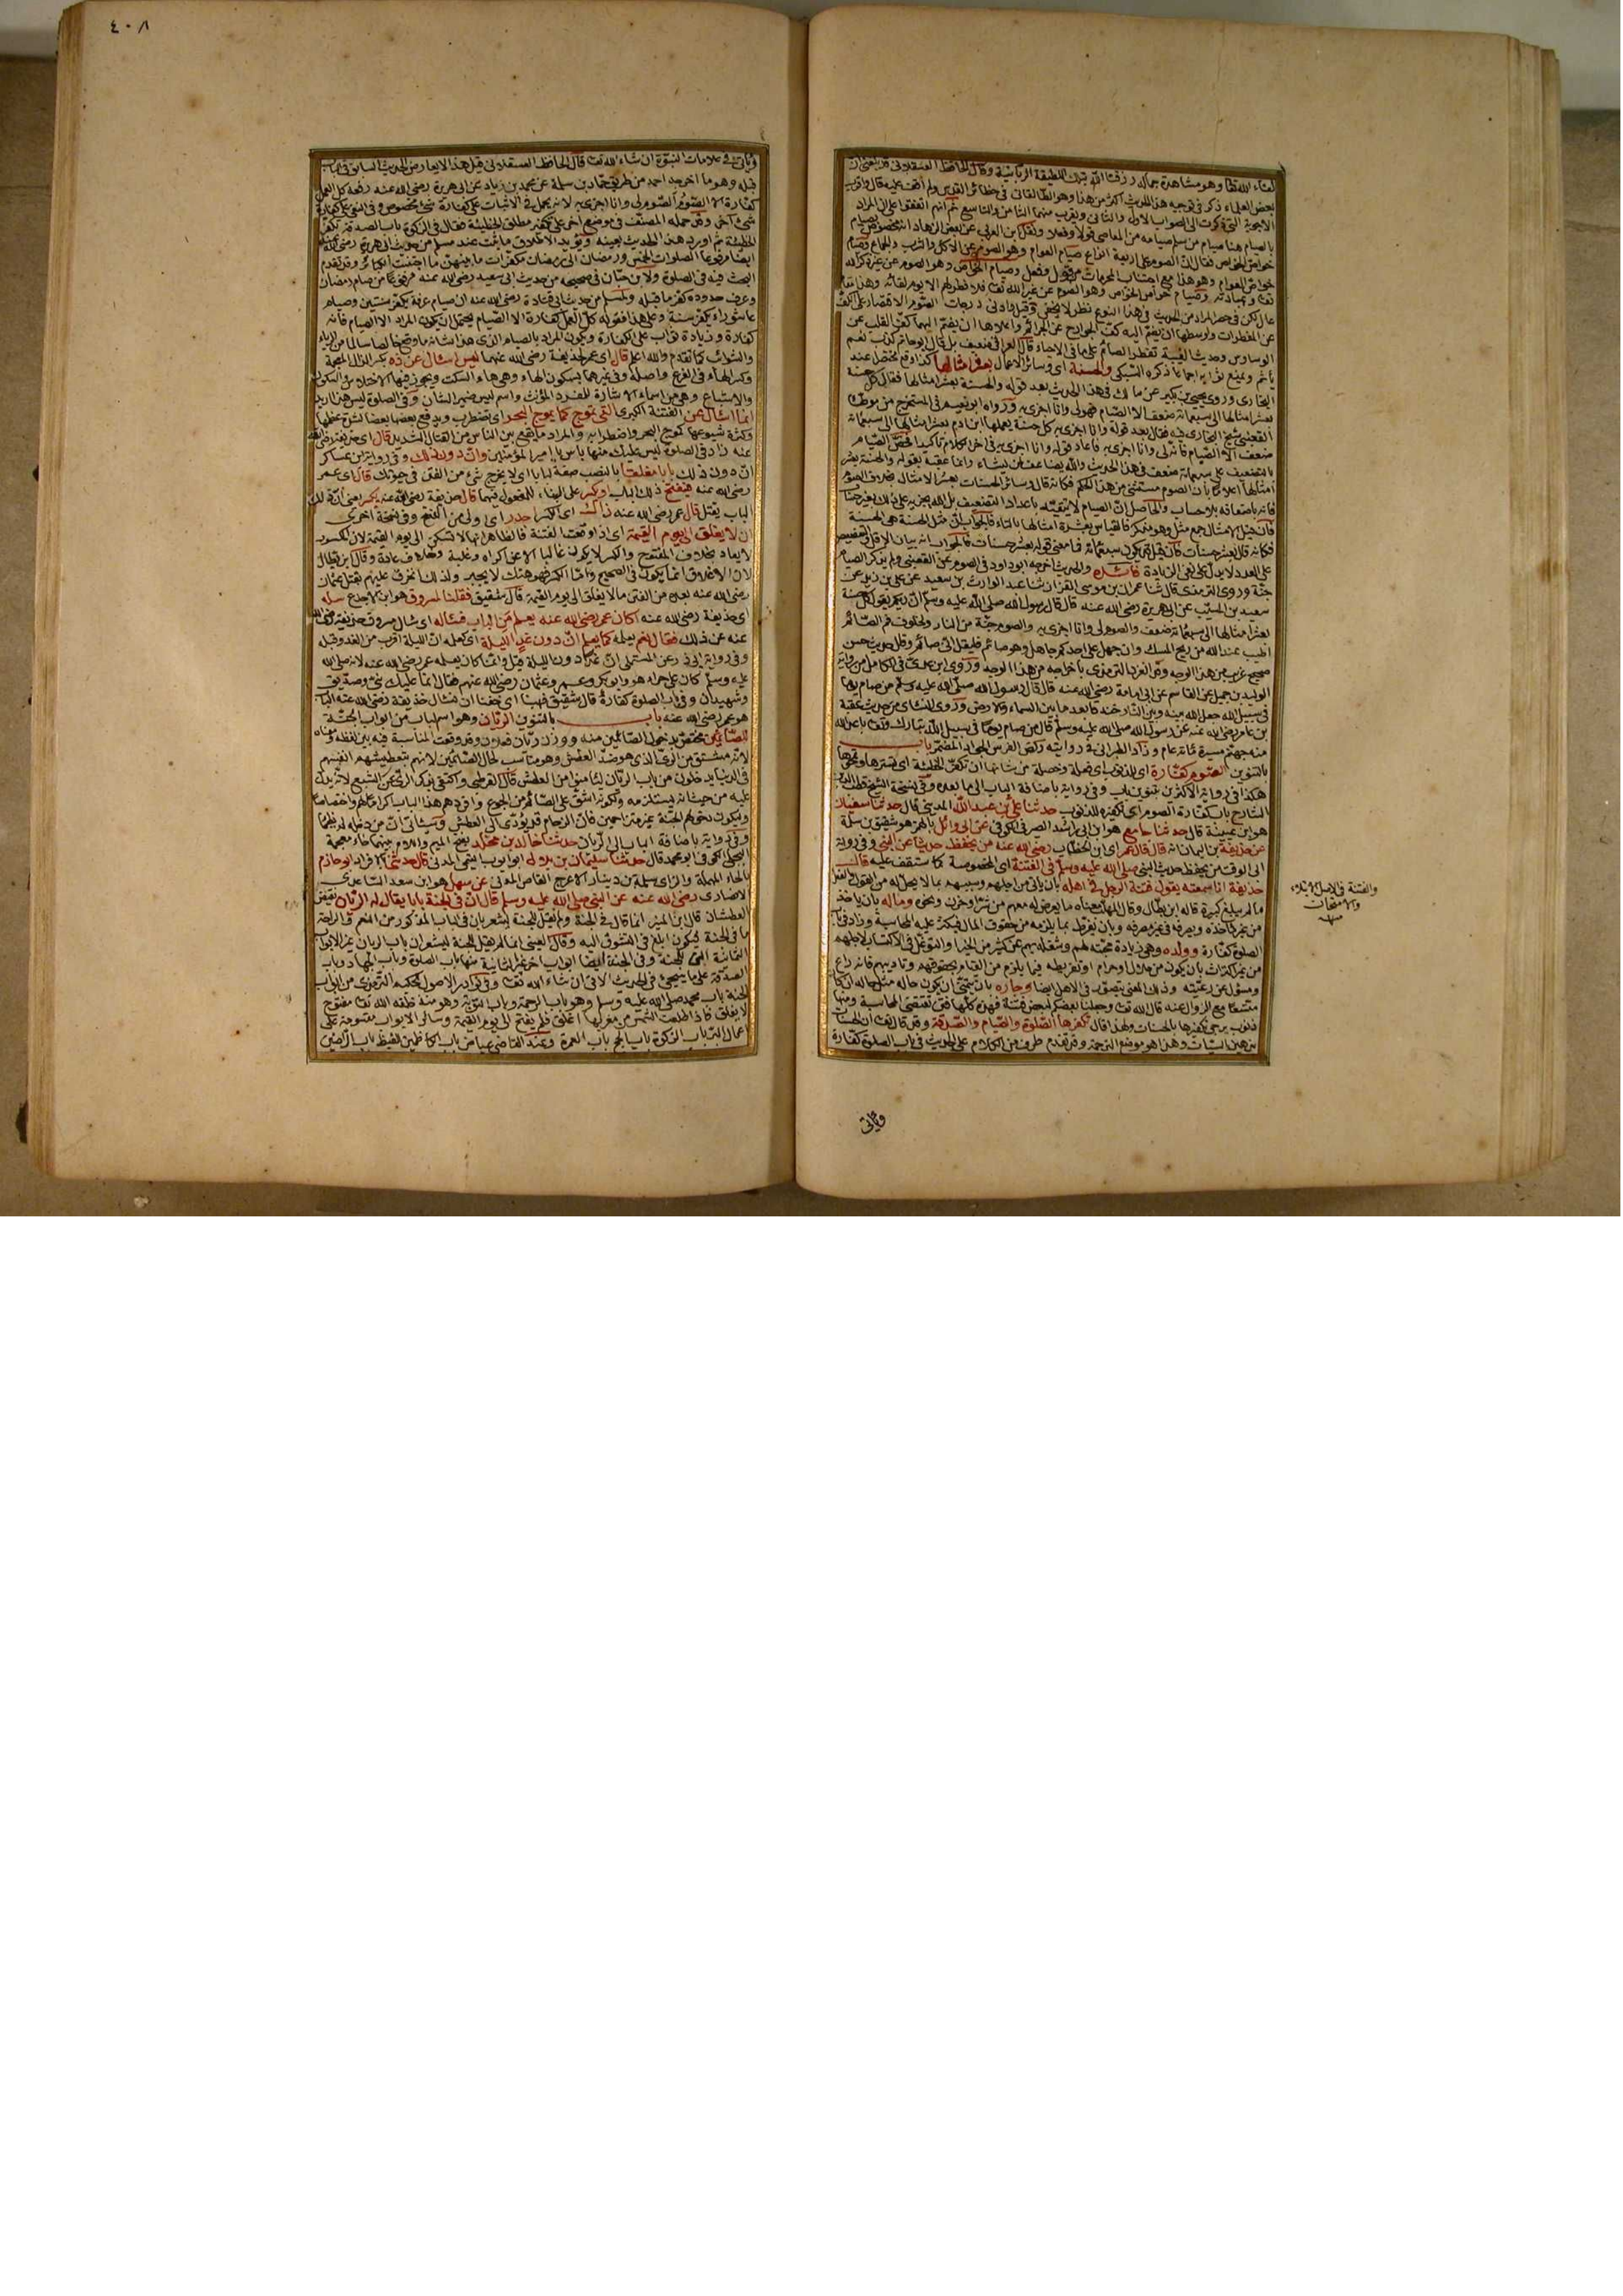 ٤٠٨
لقاء الله تعالى وهو مشاهدة جماله رزقنا الله تلك اللطيفة الربانية وقال الحافظ العسقلاني قد بلغني ان
بعض العلماء ذكر في توجيه هذا الحديث اكثر من هذا وهو الطالقاني في حظائر القدس ولم اقف عليه قال واقرب
الاجوبة التي ذكرت الى الصواب الاول والثاني ويقرب منهما الثامن والتاسع ثم انهم اتفقوا على ان المراد
بالصيام هنا صيام من سلم صيامه من المعاصي قولا وفعلا ونقل ابن العربي عن بعض الزهاد انه مخصوص بصيام
خواص الخواص فقال ان الصوم على اربعة انواع صيام العوام وهو الصوم عن الاكل والشرب والجماع وصيام
خواص العوام وهو هذا مع اجتناب المحرمات من قول وفعل وصيام الخواص وهو الصوم عن غير ذكر الله
تعـ وعبادته وصيام خواص الخواص وهو الصوم عن غير الله تعـ فلا فطر لهم الا يوم لقائه وهذا مقام
عال لكن في حصر المراد من الحديث في هذا النوع نظر لا يخفى وقيل وادنى درجات الصوم الاقتصار على الكف
عن المفطرات واوسطها ان يضم اليه كف الجوارح عن الجرائم واعلاها ان يضم اليهما كف القلب عن
الوساوس
ياثم ويمنع ثوابه اجماعا ذكره السبكي والحسنة اى وسائر الاعمال بعشر امثالها كذا وقع مختصرا عند
البخاري وروى يحيى بن بكير عن مالك في هذا الحديث بعد قوله والحسنة بعشر امثالها فقال كل حسنة
بعشر امثالها الى سبعمائة ضعف الا الصيام فهو لي وانا اجزى به ورواه ابو نعيم في المستخرج من موطا
القعنبي شيخ البخاري فيه فقال بعد قوله وانا اجزى به كل حسنة يعملها ابن ادم بعشر امثالها الى سبعمائة
ضعف الا الصيام فانه لي وانا اجزى به فاعاد قوله وانا اجزى به في اخر الكلام تاكيدا
امثالها اعلاما بان الصوم مستثنى من هذا الحكم فكانه قال وسائر الحسنات بعشر الامثال بخلاف الصوم
فانه باضعافه بلا حساب والحاصل ان الصيام لا يتقيد باعداد التضعيف بل الله يجزيه على ذلك بغير حساب
فان قيل الامثال جمع مثل وهو مذكر فالقياس بعشرة امثالها بالتاء فالجواب ان مثل الحسنة هي الحسنة
فكانه قال بعشر حسنات
على العدد لا يدل على نفي الزيادة فائدة والحديث اخرجه ابو داود في الصوم عن القعنبي ولم يذكر الصيام
جنة وروى الترمذي قال ثنا عمران بن موسى القزاز ثنا عبد الوارث بن سعيد عن علي بن زيد عن
سعيد بن المسيب عن ابى هريرة رضي الله عنه قال قال رسول الله صلى الله عليه وسلم ان ربكم يقول كل حسنة
بعشر امثالها الى سبعمائة ضعف والصوم لي وانا اجزى به والصوم جنة من النار ولخلوف فم الصائم
اطيب عند الله من ريح المسك وان جهل على احدكم جاهل وهو صائم فليقل انى صائم وقال حديث حسن
صحيح غريب من هذا الوجه
الوليد بن جميل عن القاسم عن ابى امامة رضي الله عنه قال قال رسول الله صلى الله عليه وسلم من صام يوما
في سبيل الله جعل الله بينه وبين النار خندقا كما بين السماء والارض وروى النسائي من حديث عقبة
بن عامر رضي الله عنه عن رسول الله صلى الله عليه وسلم قال من صام يوما في سبيل الله تبارك وتعـ باعد الله
منه جهنم مسيرة مائة عام وزاد الطبراني في روايته ركض الفرس الجواد المضمر باب
بالتنوين الصوم كفارة اى للذنوب
هكذا في رواية الاكثرين بتنوين باب وفي رواية باضافة الباب الى ما بعده وفي نسخة الشيخ قطب الدين
الشارح باب كفارة الصوم اى تكفيره للذنوب حدثنا علي بن عبد الله المديني قال حدثنا سفيان
هو ابن عيينة قال حدثنا جامع هو ابن ابى راشد الصيرفي الكوفي عن ابى وائل بالهمز هو شقيق بن سلمة
عن حذيفة بن اليمان انه قال قال عمر اى ابن الخطاب رضي الله عنه من يحفظ حديثا عن النبي وفي رواية
ابى الوقت من يحفظ حديث النبي صلى الله عليه وسلم في الفتنة اى المخصوصة كما ستقف عليه قال
حذيفة انا سمعته يقول فتنة الرجل في اهله بان ياتي من اجلهم وبسببهم بما لا يحل له من القول والفعل
ما لم يبلغ كبيرة قاله ابن بطال وقال المهلب معناه ما يعرض له معهم من شر او حزن ونحوه وماله بان ياخذ
من غير ماخذه ويصرفه في غير مصرفه وبان يفرط بما يلزمه من حقوق المال فيكثر عليه المحاسبة وزاد في باب
الصلوة كفارة وولده وهي زيادة محبته لهم وشغله بهم عن كثير من الخير او التوغل في الاكتساب لاجلهم
من غير اكتراث بان يكون من حلال او حرام او تفريطه فيما يلزم من القيام بحقوقهم وتاديبهم فانه راع
ومسؤل عن رعيته وذلك المعنى يتصور في الاهل ايضا وجاره بان يتمنى ان يكون حاله مثل حاله ان كان
متسعا مع الزوال عنه قال الله تعـ وجعلنا بعضكم لبعض فتنة فهذه كلها فتن تقتضي المحاسبة ومنها
ذنوب يرجى تكفيرها بالحسنات ولهذا قال تكفرها الصلوة والصيام والصدقة وقد قال تعـ ان الحسنات
يذهبن السيئات وهذا هو موضع الترجمة وقد تقدم طرف من الكلام على الحديث في باب الصلوة كفارة
والفتنة في الاصل الابتلاء
والامتحان
منه
وياتي
وياتي في علامات النبوة ان شاء الله تعـ قال الحافظ العسقلاني قيل هذا لا يعارض الحديث السابق في الباب
قبله وهو ما اخرجه احمد من طريق حماد بن سلمة عن محمد بن زياد عن ابى هريرة رضي الله عنه رفعه كل العمل
كفارة الا الصوم الصوم لي وانا اجزى به لانه يحمل في الاثبات على كفارة شئ مخصوص وفي النفي على كفارة
شئ اخر وقد حمله المصنف في موضع اخر على تكفير مطلق الخطيئة فقال في الزكوة باب الصدقة تكفر
الخطيئة ثم اورد هذا الحديث بعينه ويؤيد الاطلاق ما ثبت عند مسلم من حديث ابى هريرة رضي الله عنه
ايضا مرفوعا الصلوات الخمس ورمضان الى رمضان مكفرات ما بينهن ما اجتنبت الكبائر وقد تقدم
البحث فيه في الصلوة ولابن حبان في صحيحه من حديث ابى سعيد رضي الله عنه مرفوعا من صام رمضان
وعرف حدوده كفر ما قبله ولمسلم من حديث ابى قتادة رضي الله عنه ان صيام عرفة يكفر سنتين وصيام
عاشوراء يكفر سنة وعلى هذا فقوله كل العمل كفارة الا الصيام يحتمل ان يكون المراد الا الصيام فانه
كفارة وزيادة ثواب على الكفارة ويكون المراد بالصيام الذي هذا شانه ما وقع خالصا سالما من الرياء
والشوائب كما تقدم والله اعلم قال اى عمر لحذيفة رضي الله عنهما ليس اسئال عن ذه بكسر الذال المعجمة
وكسر الهاء في الفرع واصله وفي غيرهما بسكون الهاء وهي هاء السكت ويجوز فيها الاختلاس والسكون
والاشباع وهي من اسماء الاشارة للمفرد المؤنث واسم ليس ضمير الشان وفي الصلوة ليس هذا اريد
انما اسئال عن الفتنة الكبرى التي تموج كما يموج البحر اى تضطرب ويدفع بعضها بعضا لشدة عظمها
وكثرة شيوعها كموج البحر واضطرابه والمراد ما يقع بين الناس من القتال الشديد قال اى حذيفة رضي الله
عنه زاد في الصلوة ليس عليك منها باس يا امير المؤمنين وان دون ذلك وفي رواية ابن عساكر
ان دون ذلك بابا مغلقا بالنصب صفة لبابا اى لا يخرج شئ من الفتن في حيوتك قال اى عمر
رضي الله عنه فيفتح ذلك الباب او يكسر على البناء للمفعول فيهما قال حذيفة رضي الله عنه يكسر
الباب يقتل قال عمر رضي الله عنه ذاك اى الكسر اجدر اى اولى من الفتح وفي نسخة اخرى
ان لا يغلق الى يوم القيمة اى اذا وقعت الفتنة فالظاهر انها لا تسكن الى يوم القيمة لان المكسور
لا يعاد بخلاف المفتوح والكسر لا يكون غالبا الا عن اكراه وغلبة وخلاف عادة وقال ابن بطال
لان الاغلاق انما يكون في الصحيح واما الكسر فهو هتك لا يجبر ولذلك انخرق عليهم بقتل عثمان
رضي الله عنه بعده من الفتن ما لا يغلق الى يوم القيمة قال شقيق فقلنا لمسروق هو ابن الاجدع سله
اى حذيفة رضي الله عنه اكان عمر رضي الله عنه يعلم من الباب فسئاله اى سال مسروق حذيفة رضي الله
عنه عن ذلك فقال نعم يعلمه كما يعلم ان دون غد الليلة اى كعلمه ان الليلة اقرب من الغد وقيل
وفي رواية ابى ذر عن المستملي ان غدا دون الليلة قيل وانما كان يعلمه عمر رضي الله عنه لانه صلى الله
عليه وسلم كان على حراء هو وابو بكر وعمر وعثمان رضي الله عنهم فقال انما عليك نبي وصديق
وشهيدان وفي باب الصلوة كفارة قال شقيق فهبنا اى خفنا ان نسئال حذيفة رضي الله عنه الباب
هو عمر رضي الله عنه باب بالتنوين الريان وهو اسم لباب من ابواب الجنة
للصائمين مختص بدخول الصائمين منه ووزن ريان فعلان وقد وقعت المناسبة فيه بين لفظه ومعناه
لانه مشتق من الري الذي هو ضد العطش وهو مناسب لحال الصائمين لانهم بتعطيشهم انفسهم
في الدنيا يدخلون من باب الريان ليامنوا من العطش قال القرطبي واكتفى بذكر الري عن الشبع لانه يدل
عليه من حيث انه يستلزمه ولكونه اشق على الصائم من الجوع وافردهم هذا الباب اكراما لهم واختصاصا
وليكون دخولهم الجنة غير متزاحمين فان الزحام قد يؤدي الى العطش وسيئاتي ان من دخله لم يظما
وفي رواية باضافة الباب الى الريان حدثنا خالد بن مخلد بفتح الميم واللام بينهما خاء معجمة
البجلي الكوفي ابو محمد قال حدثنا سليمان بن بلال ابو ايوب التيمي المدني قال حدثني بالافراد ابو حازم
بالحاء المهملة والزاى سلمة بن دينار الاعرج القاص المدني عن سهل هو ابن سعد الساعدي
الانصاري رضي الله عنه عن النبي صلى الله عليه وسلم قال ان في الجنة بابا يقال له الريان نقيض
العطشان قال ابن المنير انما قال في الجنة ولم يقل للجنة ليشعر بان في الباب المذكور من النعيم والراحة
ما في الجنة فيكون ابلغ في التشوق اليه وقال العيني انما لم يقل للجنة ليشعر ان باب الريان غير الابواب
الثمانية التي للجنة وفي الجنة ايضا ابواب اخر غير الثمانية منها باب الصلوة وباب الجهاد وباب
الصدقة على ما سيجئ في الحديث الاتي ان شاء الله تعـ وفي نوادر الاصول للحكيم الترمذي من ابواب
الجنة باب محمد صلى الله عليه وسلم وهو باب الرحمة وباب التوبة وهو منذ خلقه الله تعـ مفتوح
لا يغلق فاذا طلعت الشمس من مغربها اغلق فلم يفتح الى يوم القيمة وسائر الابواب مقسومة على
اعمال البر باب الزكوة باب الحج باب العمرة وعند القاضي عياض باب الكاظمين الغيظ باب الراضين